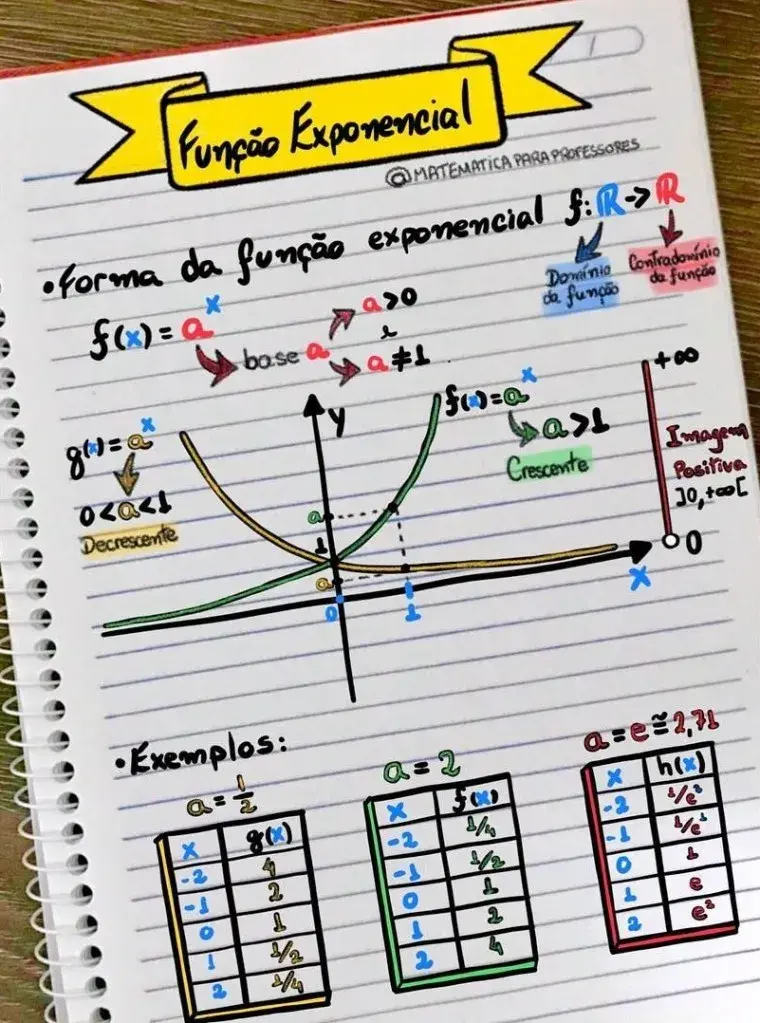 Função Exponencial
@MATEMATICA PARA PROFESSORES
•Forma da função exponencial f: ℝ -> ℝ
Domínio da função
Contradomínio da função
f(x) = a^x
base a
a>0
e
a≠1
g(x) = a^x
0<a<1
Decrescente
y
f(x)=a^x
a>1
Crescente
+∞
Imagem
Positiva
]0,+∞[
0
a
1
a
0
1
x
•Exemplos:
a = 1/2
x g(x)
-2 4
-1 2
0 1
1 1/2
2 1/4
a = 2
x f(x)
-2 1/4
-1 1/2
0 1
1 2
2 4
a = e ≅ 2,71
x h(x)
-2 1/e²
-1 1/e¹
0 1
1 e
2 e²